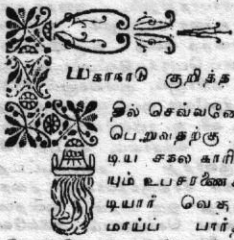 மகாநாடு குறித்த
தில் செவ்வனே
பெறுவதற்கு
டிய சகல காரி
யும் உபசரணை
டியார்
மாய்ப் பார்